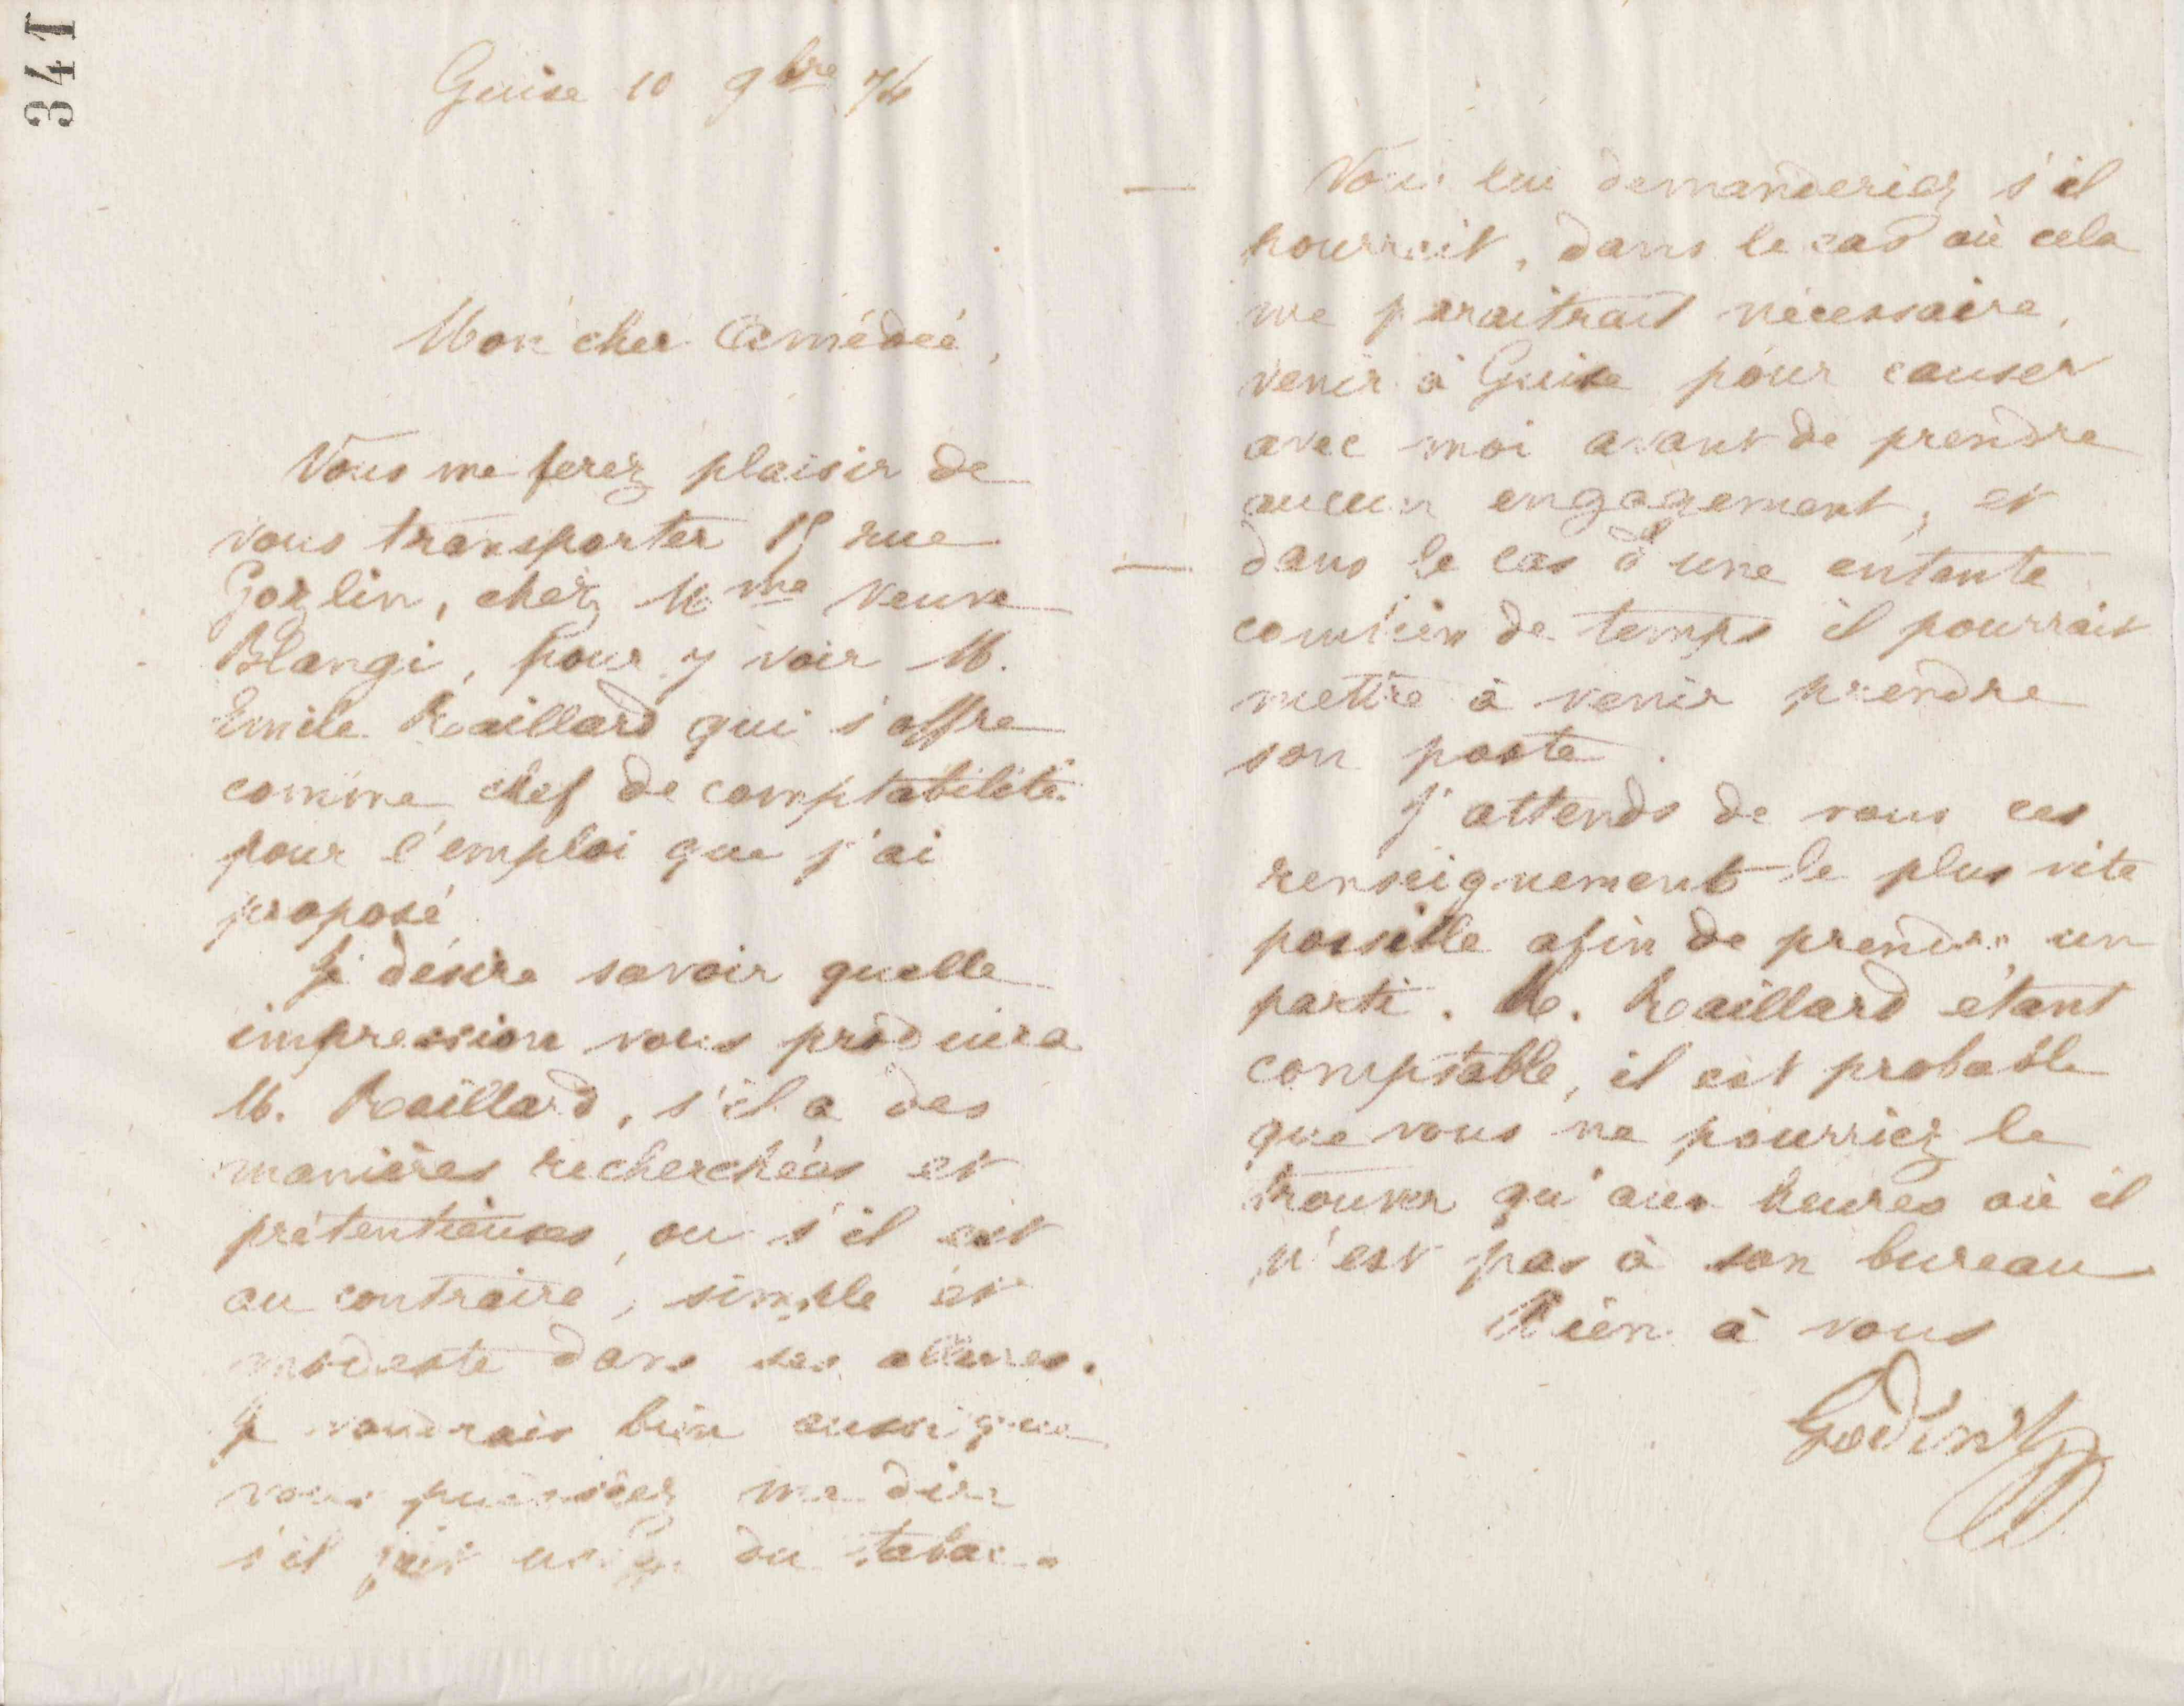 341
Guise 10 9bre 74
Mon cher Amédée,
Vous me ferez plaisir de
vous transporter 15 rue
Gozlin, chez Mme veuve
Blangi, pour y voir M.
Emile Raillard qui s'offre
comme chef de comptabilité
pour l'emploi que j'ai
proposé
Je désire savoir quelle
impression vous produira
M. Raillard, s'il a des
manières recherchées et
prétentieuses, ou s'il est
au contraire, simple et
modeste dans ses allures.
Je voudrais bien aussi que
vous puissiez me dire
s'il fait usage du tabac.
Vous lui demanderiez s'il
pourrait, dans le cas où cela
me paraitrait nécessaire,
venir à Guise pour causer
avec moi avant de prendre
aucun engagement, et
dans le cas d'une entente
combien de temps il pourrait
mettre à venir prendre
son poste.
J'attends de vous ces
renseignements le plus vite
possible afin de prendre un
parti. M. Raillard étant
comptable, il est probable
que vous ne pourriez le
trouver qu'aux heures où il
n'est pas à son bureau
Bien à vous
Godin